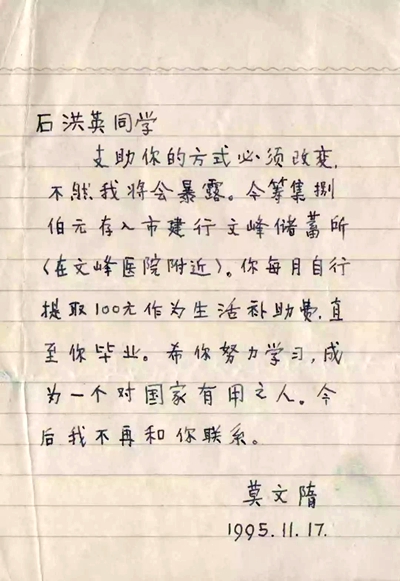 石洪英同学
支助你的方式必须改变，
不然我将会暴露。今筹集捌
伯元存入市建行文峰储蓄所
（在文峰医院附近）。你每月自行
提取100元作为生活补助费，直
至你毕业。希你努力学习，成
为一个对国家有用之人。今
后我不再和你联系。
莫文隋
1995.11.17.